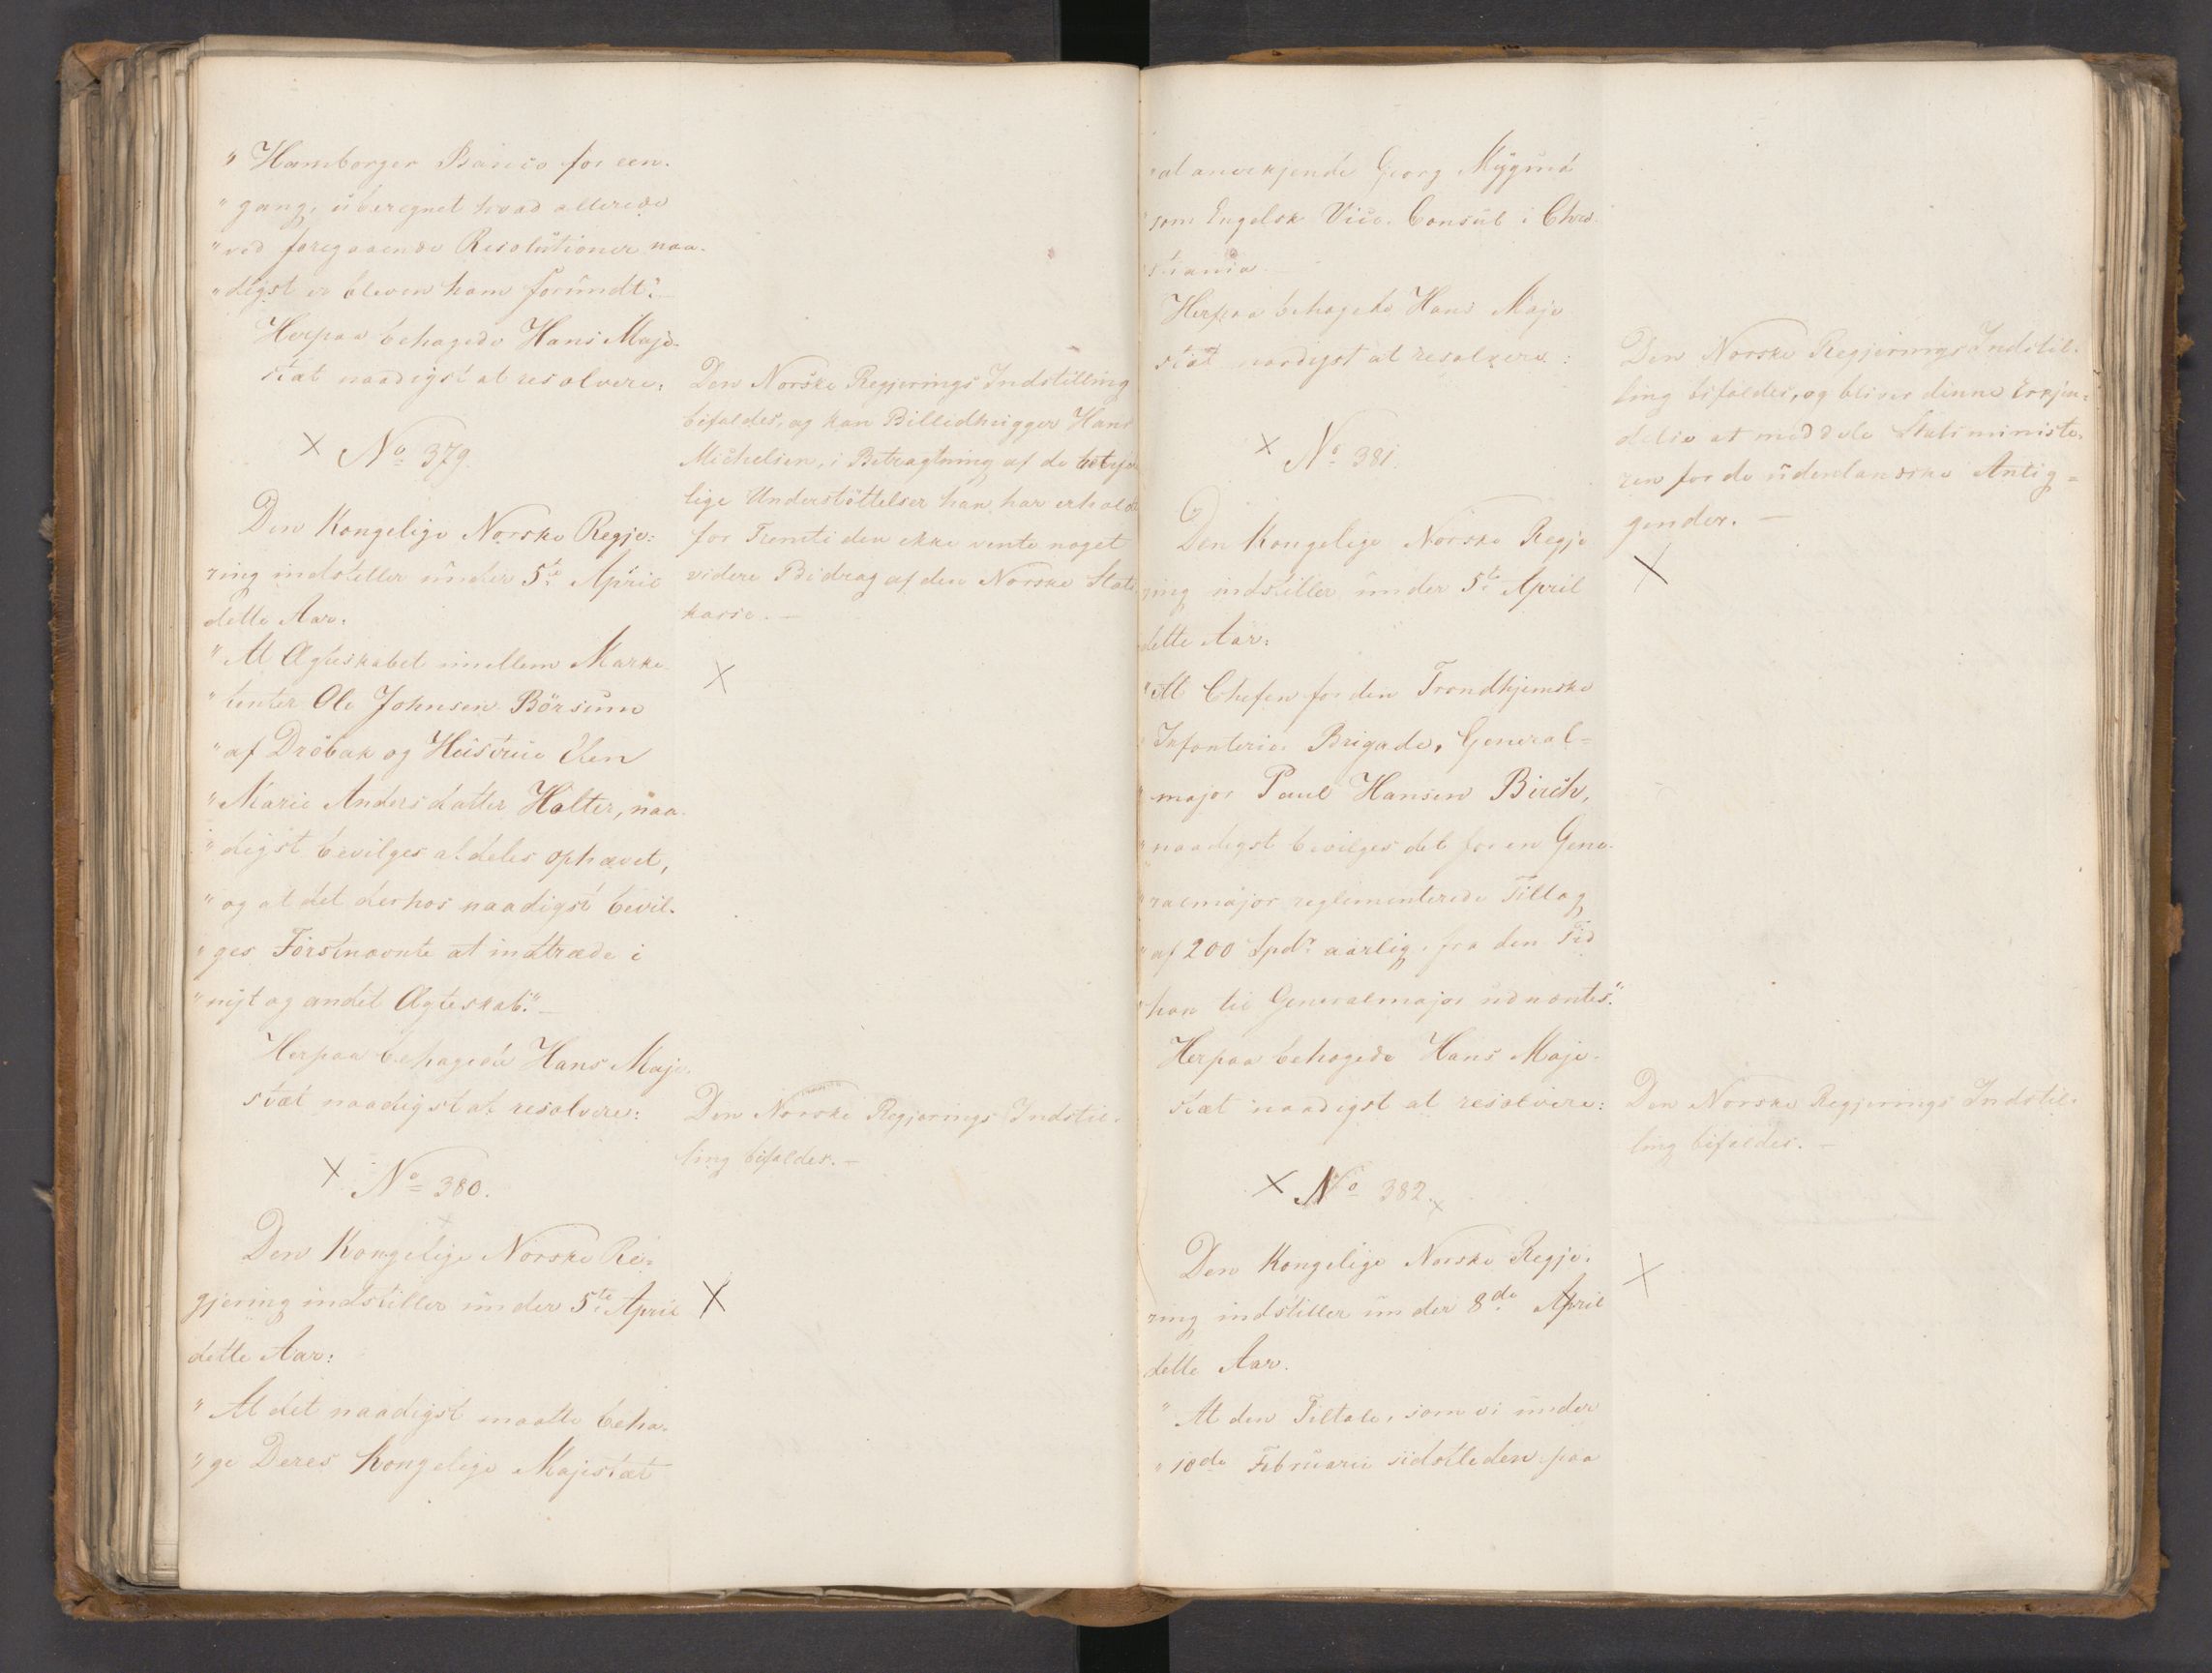 " Hamborger Banco for een-
" gang, uberegnet hvad allerede
" ved foregaaende Resolutioner naa-
" digst er bleven ham forundt."
Herpaa behagede Hans Maje-
stæt naadigst at resolvere:
Den Norske Regjerings Indstilling
bifaldes, og kan Billedhugger Hans
Michelsen, i Betragtning af de betyde
lige Understöttelser han har erholdt
for Fremtiden ikke vente noget
videre Bidrag af den Norske Stats
kasse. —
× No 379.
Den Kongelige Norske Regje-
ring indstiller under 5te April
dette Aar:
" At Ægteskabet imellem Marke-
" tenter Ole Johnsen Börsum
" af Dröbak og Hustrue Elen
" Marie Andersdatter Holter, naa-
" digst bevilges aldeles ophævet,
" og at det derhos naadigst bevil-
" ges Förstnævnte at indtræde i
" nyt og andet Ægteskab." —
×
Herpaa behagede Hans Maje-
stæt naadigst at resolvere:
Den Norske Regjerings Indstil-
ling bifaldes. —
× No 380.
Den Kongelige Norske Re-
gjering indstiller under 5te April
dette Aar:
×
" At det naadigst maatte beha-
" ge Deres Kongelige Majestæt
" at anerkjende Georg Mygind
" som Engelsk Vice-Consul i Chri-
" stiania.
Herpaa behagede Hans Maje
stæt naadigst at resolvere:
Den Norske Regjerings Indstil-
ling bifaldes, og bliver denne Erkjen-
delse at meddele Statsministe-
ren for de udenlandske Anlig-
gender. —
× No 381.
Den Kongelige Norske Regje
ring indstiller under 5te April
dette Aar:
×
" At Chefen for den Trondhjemske
" Infanterie-Brigade, General-
" major Paul Hansen Birch,
" naadigst bevilges det for en Gene-
" ralmajor reglementerede Tillæg
" af 200 Spdr aarlig, fra den Tid
" han til Generalmajor udnævntes."
Herpaa behagede Hans Maje-
stæt naadigst at resolvere:
Den Norske Regjerings Indstil-
ling bifaldes. —
× No 382. ×
Den Kongelige Norske Regje-
ring indstiller under 8de April
dette Aar.
×
" At den Tiltale, som vi under
" 10de Februarii sidstleden paa